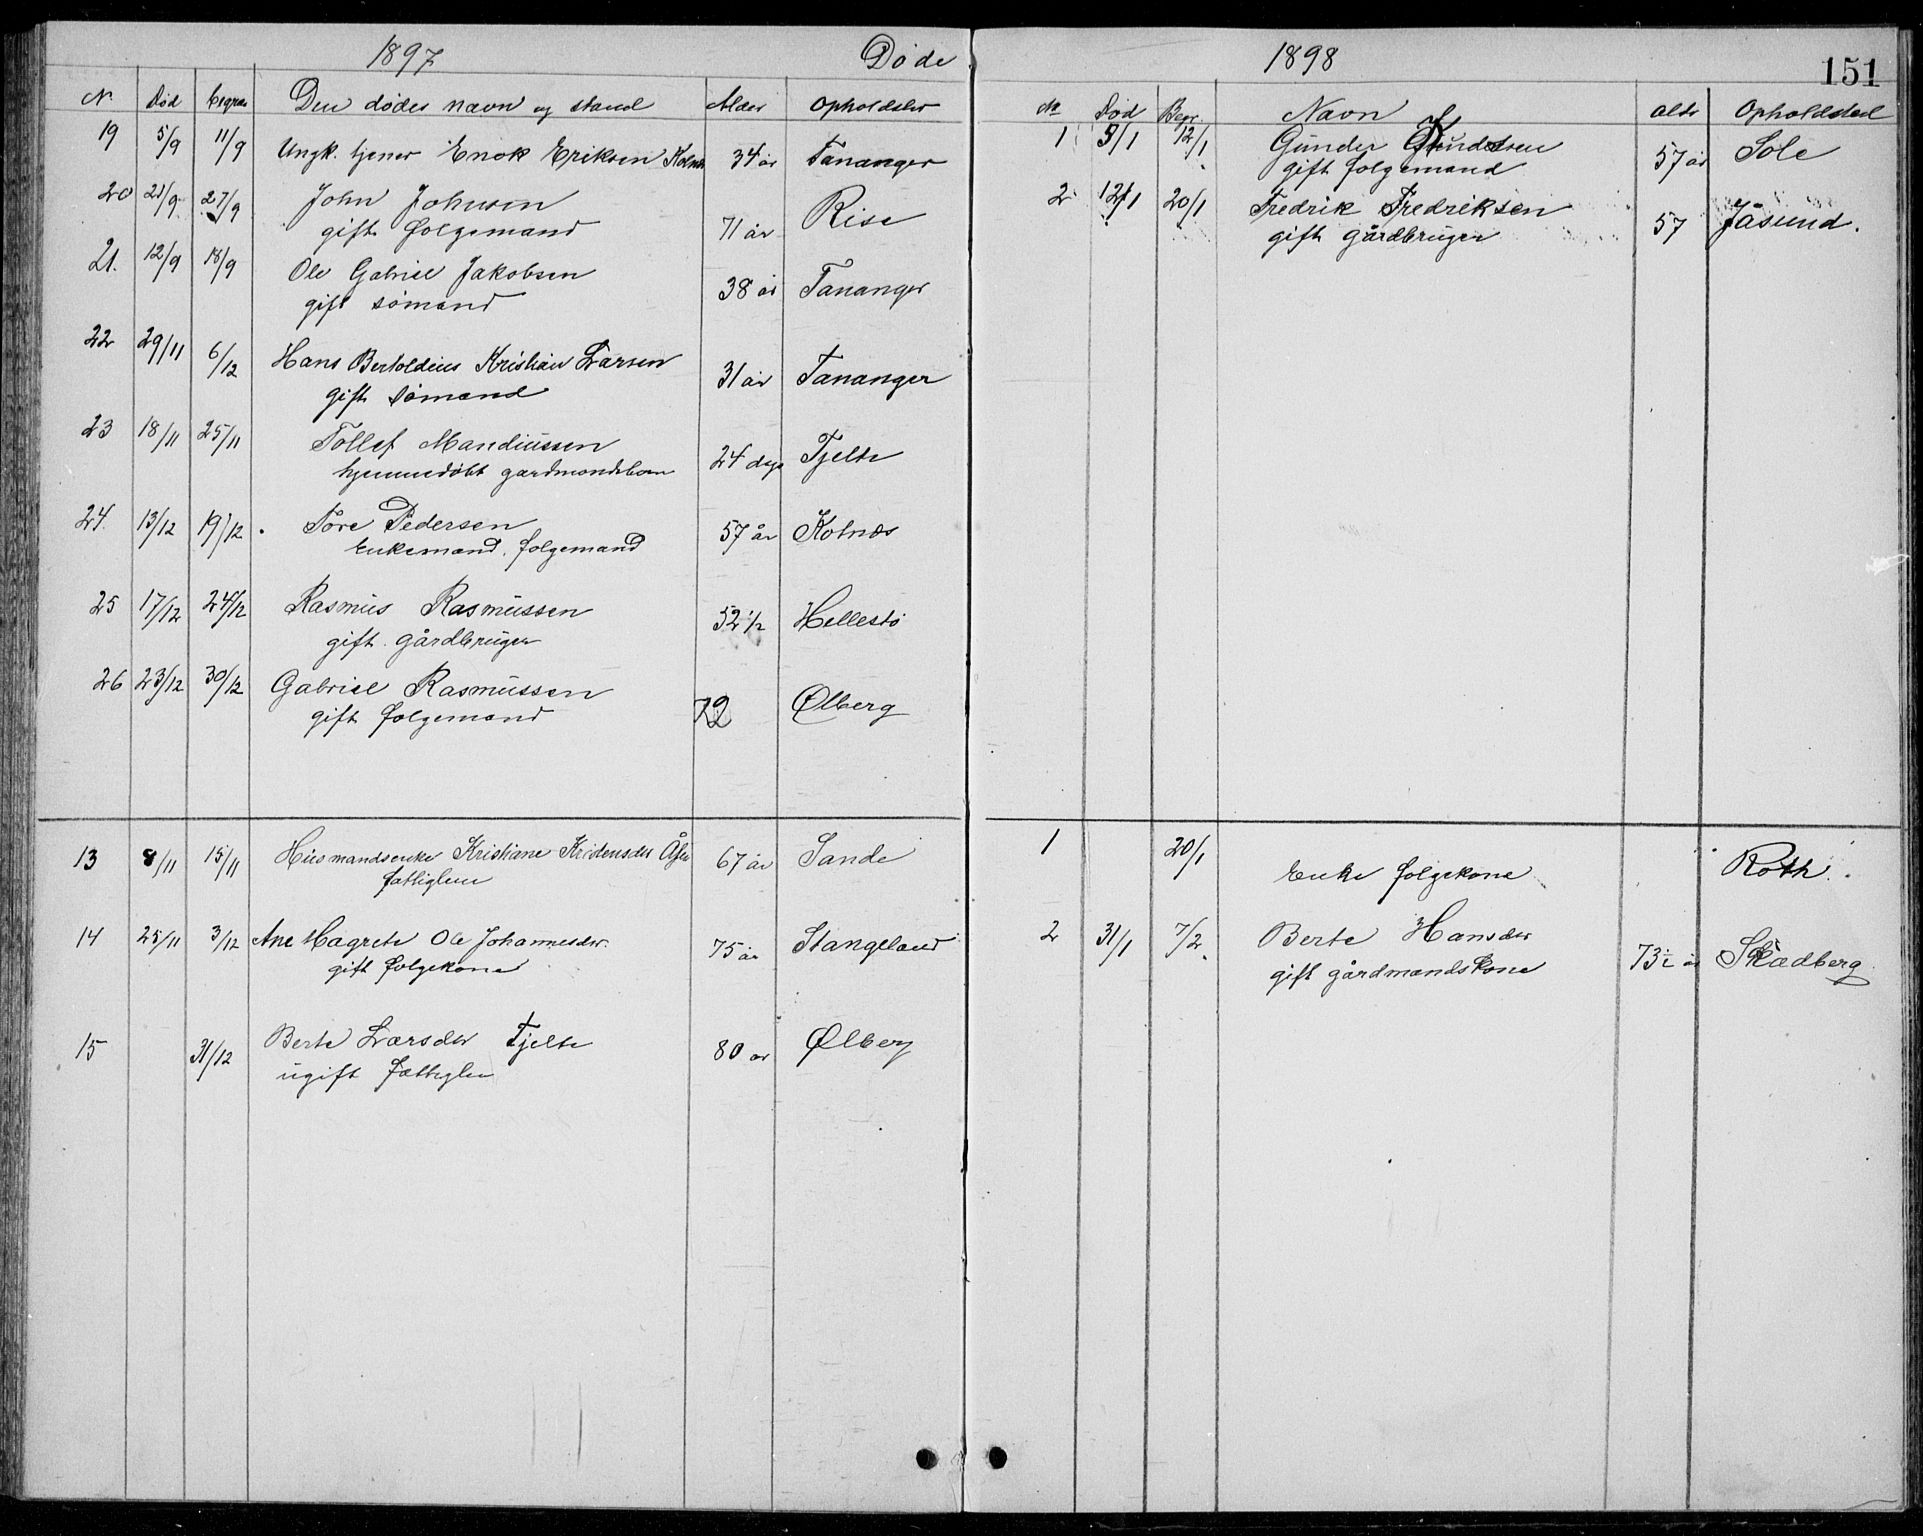 1897 Døde
N. Død begrav Den dødes navn og stand Alder Opholdsted
19 5/9 11/9 Ungk. tjener Enok Eriksen Kolnes 34 år Tananger
20 21/9 27/9 John Johnsen
gift folgemand 71 år Rise
21. 12/9 18/9 Ole Gabriel Jakobsen
gift sømand 38 år Tananger
22 29/11 6/12 Hans Bertoldius Kristian Larsen
gift sømand 31 år Tananger
23 18/11 25/11 Tollef Mandiussen
hjemmedøbt gardmandsbarn 24 dage Tjelte
24. 13/12 19/12 Tore Pedersen
Enkemand, folgemand 57 år Kolnæs
25 17/12 24/12 Rasmus Rasmussen
gift gårdbruger 52 1/2 Hellestø
26 23/12 30/12 Gabriel Rasmussen
gift folgemand 72 Ølberg
13 8/11 15/11 Husmandsenke Kristiane
fattiglem 67 år Sande
14 25/11 3/12 Ane Magrete Ole Johannesdtr.
gift folgekone 75 år Stangeland
15 31/12 Berte Larsdtr Tjelte
ugift fattiglem 80 år Ølberg
1898 151
No Død Begr. Navn alder Opholdsted
1 5/1 12/1 Gunder
gift folgemand 57 år Sole
2 12/1 20/1 Fredrik Fredriksen
gift gårdbruger 57 Jåsund.
1 20/1
Enke folgekone Roth.
2 31/1 7/2 Berte Hansdtr
gift gårdmandskone 73 1/2 år Skadberg